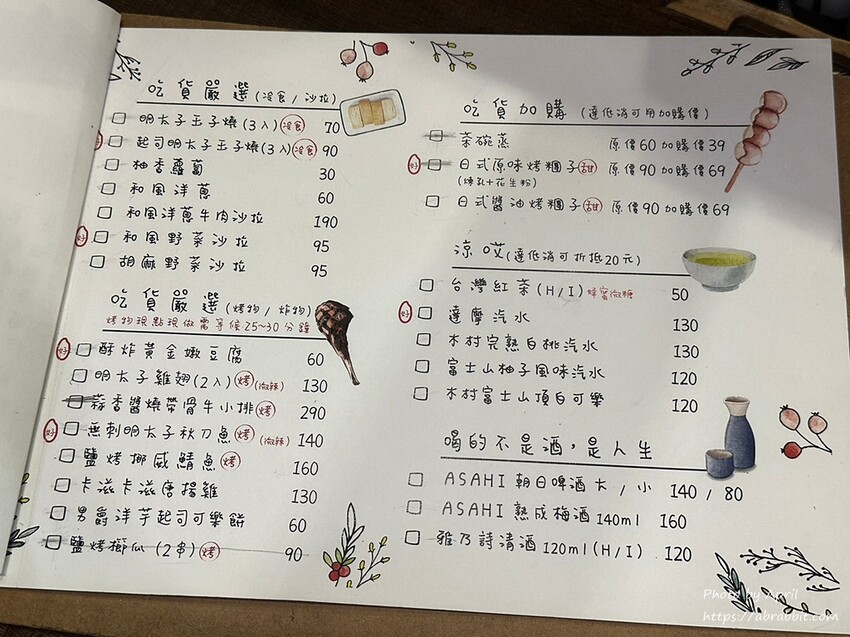 吃貨嚴選(冷食/沙拉)
明太子玉子燒(3入)冷食 70
好 起司明太子玉子燒(3入)冷食 90
柚香蘿蔔 30
和風洋蔥 60
和風洋蔥牛肉沙拉 190
好 和風野菜沙拉 95
胡麻野菜沙拉 95
吃貨嚴選(烤物/炸物)
烤物現點現做需等候25~30分鐘
好 酥炸黃金嫩豆腐 60
明太子雞翅(2入)烤(微辣) 130
蒜香醬燒帶骨牛小排烤 290
好 無刺明太子秋刀魚烤(微辣) 140
鹽烤挪威鯖魚烤 160
卡滋卡滋唐揚雞 130
男爵洋芋起司可樂餅 60
鹽烤櫛瓜(2串)烤 90
吃貨加購(達低消可用加購價)
茶碗蒸 原價60加購價39
好 日式原味烤糰子甜 原價90加購價69
(煉乳+花生粉)
日式醬油烤糰子甜 原價90加購價69
涼哎(達低消可折抵20元)
台灣紅茶(H/I)蜂蜜微糖 50
好 達摩汽水 130
木村完熟白桃汽水 130
富士山柚子風味汽水 120
木村富士山頂白可樂 120
喝的不是酒,是人生
ASAHI 朝日啤酒大/小 140/80
ASAHI 熟成梅酒140ml 160
雅乃詩清酒120ml(H/I) 120
Photo by April
https://abrabbit.com